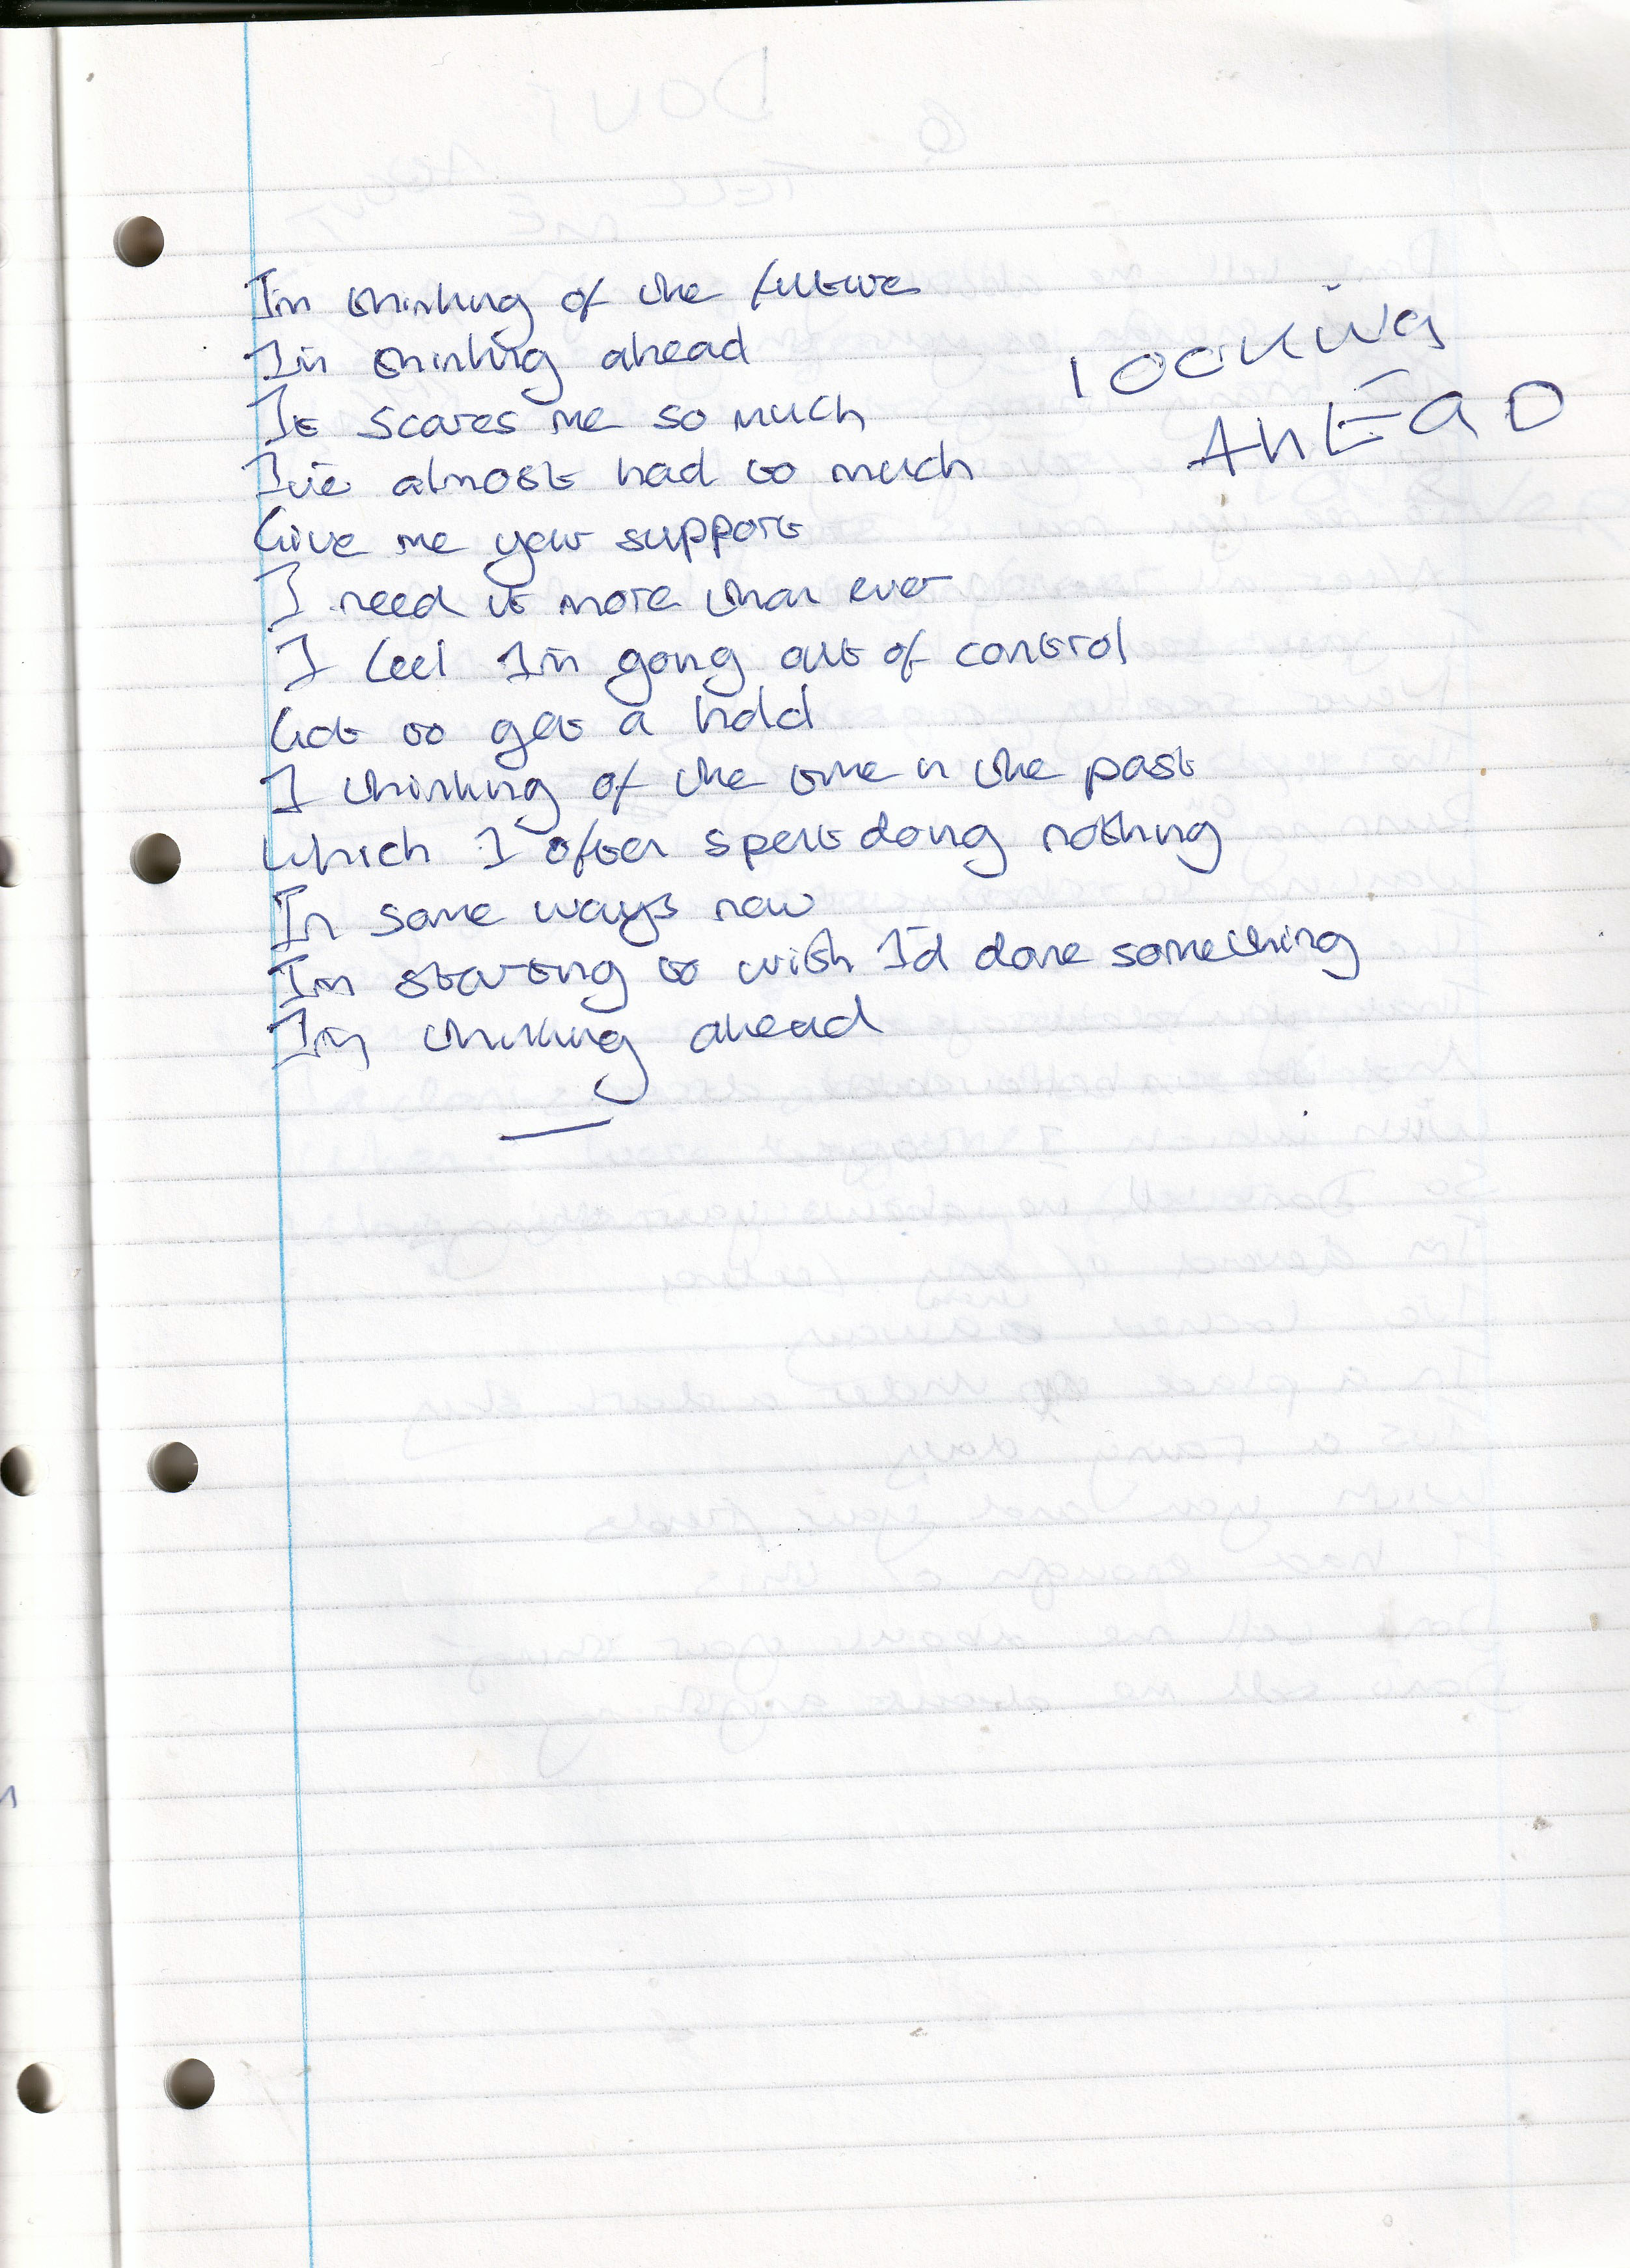 LOOKING
AHEAD
I'm thinking of the future
I'm thinking ahead
It scares me so much
I've almost had to much
Give me your support
I need it more than ever
I feel I'm going out of control
Got to get a hold
I thinking of the time in the past
Which I often spent doing nothing
In some ways now
I'm starting to wish I'd done something
I'm thinking ahead